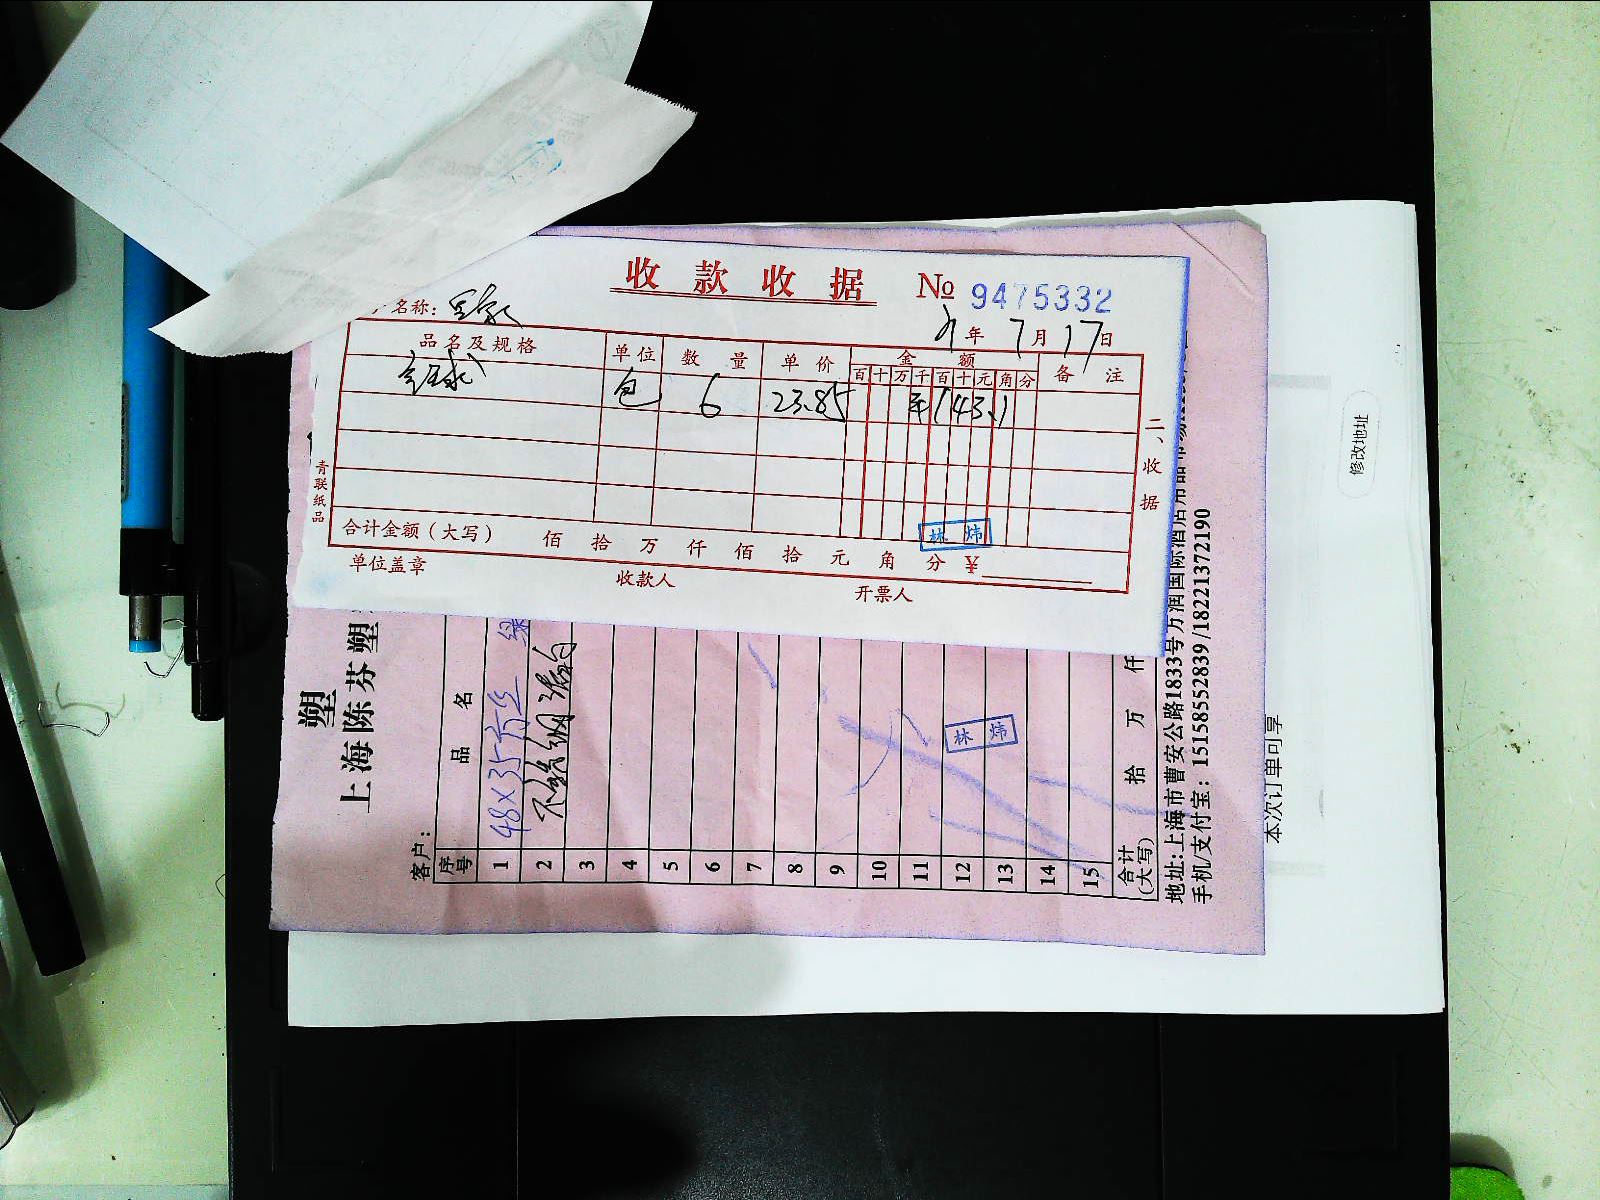 收款收据 No 9475332
名称:
年 7月17日
品名及规格 单位 数量 单价 金额 备注
百十万千百十元角分
包 6 23.85 143.1
合计金额（大写） 佰 拾 万 仟 佰 拾 元 角 分 ¥
林炜
单位盖章 收款人 开票人
二、收据
青联纸品
塑
上海陈芬塑
客户:
序号 品名
1 48×35
2
3
4
5
6
7
8
9
10
11
12
13
14
15
林炜
合计(大写) 拾 万 仟
地址:上海市曹安公路1833号万润国际酒店用品市场
手机/支付宝: 15158552839 /18221372190
本次订单可享
修改地址